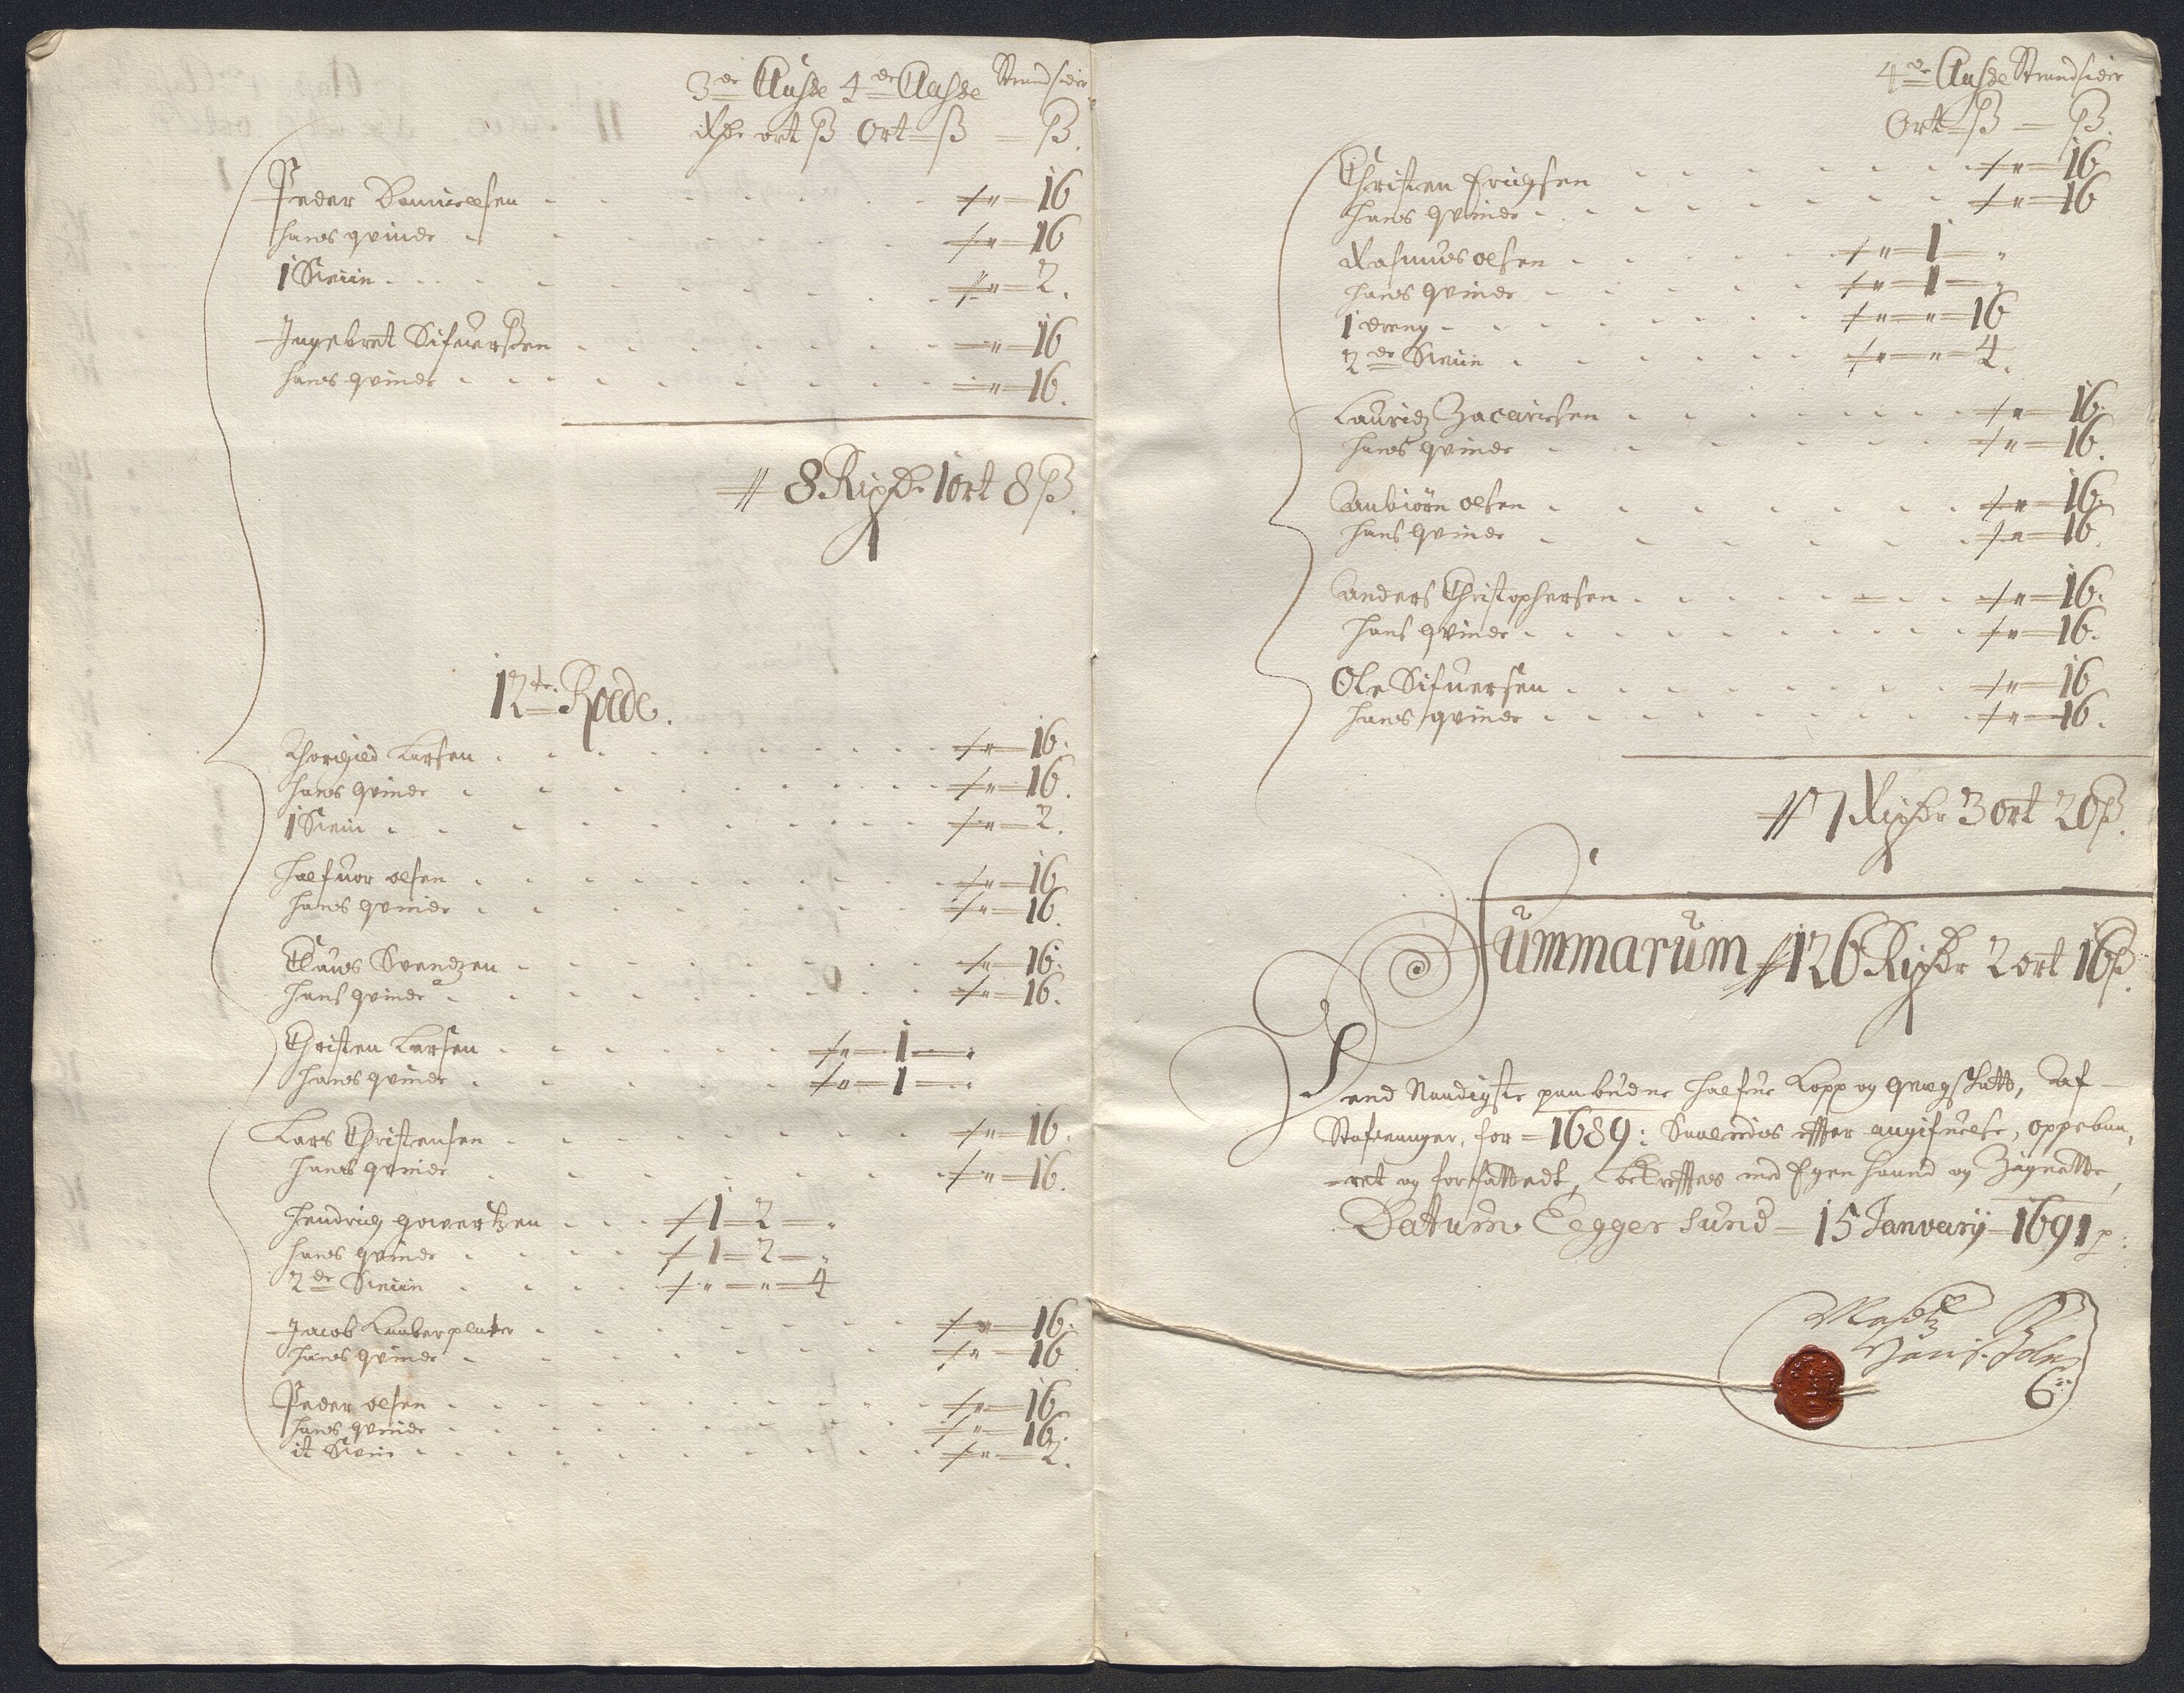 3de Classe 4de Classe Strandsider
Rdr ort ß Ort ß ß.
Peder Danielsen - - - - - - " 16
hans qvinde - - - - - - " 16
1 Søøn - - - - - - " 2.
Ingebret Sifuerßen - - - - - - " 16
hans qvinde - - - - - - " 16.
8 Rixdr 1 ort 8 ß.
12te Roede.
Larsen - - - - - - " 16.
hans qvinde - - - - - - " 16.
1 Søøn - - - - - - " 2.
Halfuor olsen - - - - - - " 16
hans qvinde - - - - - - " 16.
Claus Svendzen - - - - - - " 16.
hans qvinde - - - - - - " 16.
Christen Larsen - - - - - " 1 "
hans qvinde - - - - - " 1 "
Lars Christensen - - - - - - " 16.
hans qvinde - - - - - - " 16.
Hendrich Gowertzen - - - 1 2 "
hans qvinde - - - 1 2 "
2de Søøn - - - " " 4
Jacob - - - - - - " 16.
hans qvinde - - - - - - " 16
Peder olsen - - - - - - " 16
hans qvinde - - - - - - " 16.
it Søøn - - - - - - " 2.
4de Classe Strandsider
Ort ß ß.
Christen Erichsen - - - - - - " 16
hans qvinde - - - - - - " 16
Rasmus olsen - - - - - " 1 "
hans qvinde - - - - - " 1 "
1 dreng - - - - - " " 16
2de Søøn - - - - - " " 4.
Lauridz Zacariesen - - - - - - " 16.
hans qvinde - - - - - - " 16.
Anbiörn olsen - - - - - - " 16.
hans qvinde - - - - - - " 16.
Anders Christophersen - - - - - - " 16.
hans qvinde - - - - - - " 16.
Ole Sifuersen - - - - - - " 16
hans qvinde - - - - - - " 16.
7 Rixdr 3 ort 20 ß.
Summarum 126 Rixdr 2 ort 16 ß.
Naadigste paabudne halfue Kopp og qvægskatt, af
Stafvanger, for = 1689: Saaledes efter angifuelse, oppebaa,
=ret og forfattedt, bekreftes med Egen haand og Zignette,
Datum Eegger Sund = 15 January = 1691 p: